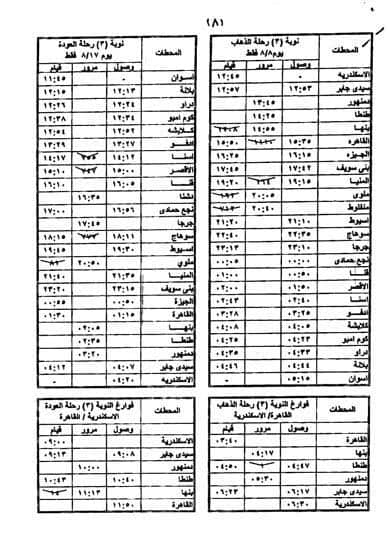 (٨١)
المحطات نوبة (٣) رحلة الذهاب
يوم ٨/٨ فقط
وصول مرور قيام
الاسكندريه - ١٢:٤٥
سيدى جابر ١٢:٥٣ ١٢:٥٧
دمنهور ١٣:٤٥
طنطا ١٤:٢٥
بنها ١٤:٥٥
القاهره ١٥:٣٥ ١٥:٥٠
الجيزه ١٦:١٥ ١٦:٢٥
بنى سويف ١٧:٤٢ ١٧:٤٥
المنيا ١٩:١٥ ١٩:٢٠
ملوى ٢٠:٠٥
منفلوط ٢٠:٤٠
اسيوط ٢١:١٠ ٢١:٢٠
سوهاج ٢٢:٣٥ ٢٢:٤٠
جرجا ٢٣:١٠ ٢٣:١٣
نجع حمادى ٠٠:٠٠ ٠٠:٠٥
قنا ٠٠:٥٠ ٠١:٠٠
الأقصر ٠١:٥٠ ٠٢:٠٠
اسنا ٠٢:٤١ ٠٢:٤٣
ادفو ٠٣:٢٥ ٠٣:٢٨
كلابشة ٠٤:٠٥ ٠٤:٠٨
كوم امبو ٠٤:٢٣ ٠٤:٢٥
دراو ٠٤:٣٣ ٠٤:٣٥
بلانة ٠٤:٤٤ ٠٤:٤٦
اسوان ٠٥:١٥ -
المحطات نوبة (٣) رحلة العودة
يوم ٨/١٧ فقط
وصول مرور قيام
اسوان - ١١:٤٥
بلانة ١٢:١٣ ١٢:١٥
دراو ١٢:٢٤ ١٢:٢٦
كوم امبو ١٢:٣٤ ١٢:٣٨
كلابشه ١٢:٥٢ ١٢:٥٤
ادفو ١٣:٢٧ ١٣:٢٩
اسنا ١٤:١٢ ١٤:١٧
الأقصر ١٥:٠٠ ١٥:١٠
قنا ١٦:٠٥ ١٦:١٠
دشنا ١٦:٣٥
نجع حمادى ١٦:٥٦ ١٧:٠٠
جرجا ١٧:٤٥
سوهاج ١٨:١١ ١٨:١٥
اسيوط ١٩:٣٠ ١٩:٤٥
ملوي ٢٠:٥٠
المنيا ٢١:٣٥ ٢١:٤٠
بنى سويف ٢٣:١٥ ٢٣:٢٠
الجيزة ٠٠:٥٠ ٠٠:٥٥
القاهرة ٠١:١٥ ٠١:٣٠
بنهـا ٠٢:٠٥
طنطـا ٠٢:٣٥
دمنهور ٠٣:٢٠
سيدى جابر ٠٤:٠٧ ٠٤:١٢
الاسكندريه ٠٤:٢٠ -
المحطات فوارغ النوبة (٣) رحلة الذهاب
القاهرة/ الاسكندرية
وصول مرور قيام
القاهره ٠٣:٤٠
بنها ٠٤:١٧
طنطا ٠٤:٤٧ ٠٤:٥٠
دمنهور ٠٥:٣٠
سيدى جابر ٠٦:١٧ ٠٦:٢٣
الاسكندرية ٠٦:٣٠
المحطات فوارغ النوبة (٣) رحلة العودة
الاسكندرية / القاهرة
وصول مرور قيام
الاسكندرية ٠٩:٠٠
سيدى جابر ٠٩:٠٨ ٠٩:١٣
دمنهور ١٠:٠٠
طنطا ١٠:٤٠ ١٠:٤٣
بنها ١١:١٣
القاهرة ١١:٥٠